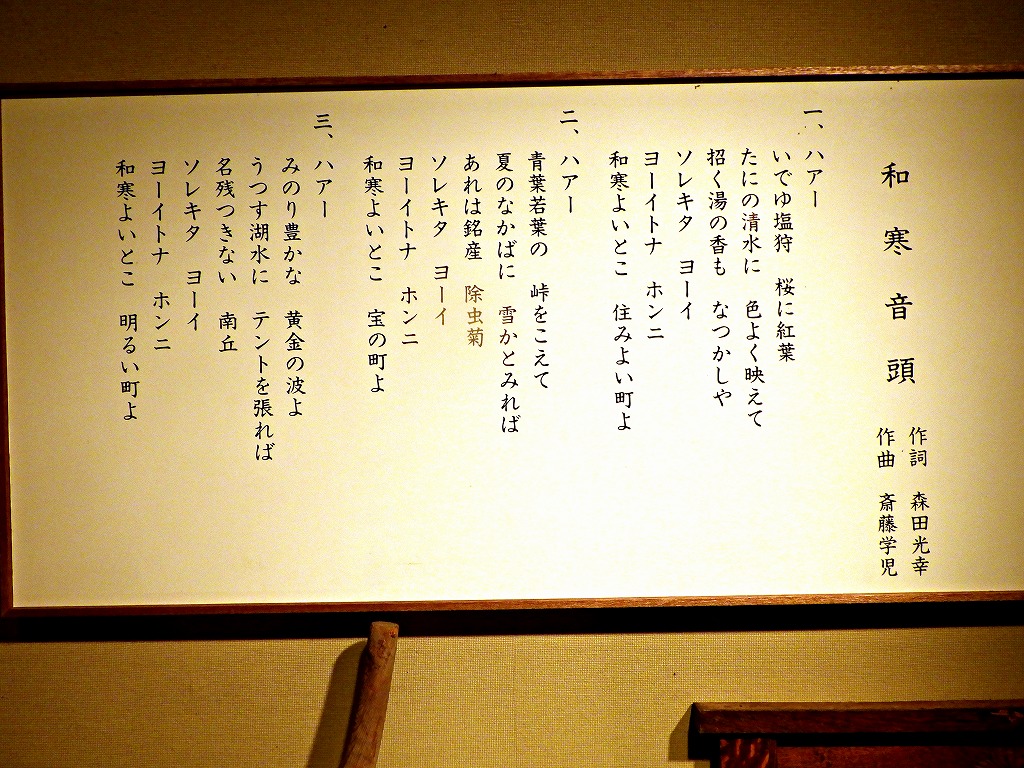 和寒音頭
作詞　森田光幸
作曲　斎藤学児
一、ハアー
いでゆ塩狩　桜に紅葉
たにの清水に　色よく映えて
招く湯の香も　なつかしや
ソレキタ　ヨーイ
ヨーイトナ　ホンニ
和寒よいとこ　住みよい町よ
二、ハアー
青葉若葉の　峠をこえて
夏のなかばに　雪かとみれば
あれは銘産　除虫菊
ソレキタ　ヨーイ
ヨーイトナ　ホンニ
和寒よいとこ　宝の町よ
三、ハアー
みのり豊かな　黄金の波よ
うつす湖水に　テントを張れば
名残つきない　南丘
ソレキタ　ヨーイ
ヨーイトナ　ホンニ
和寒よいとこ　明るい町よ